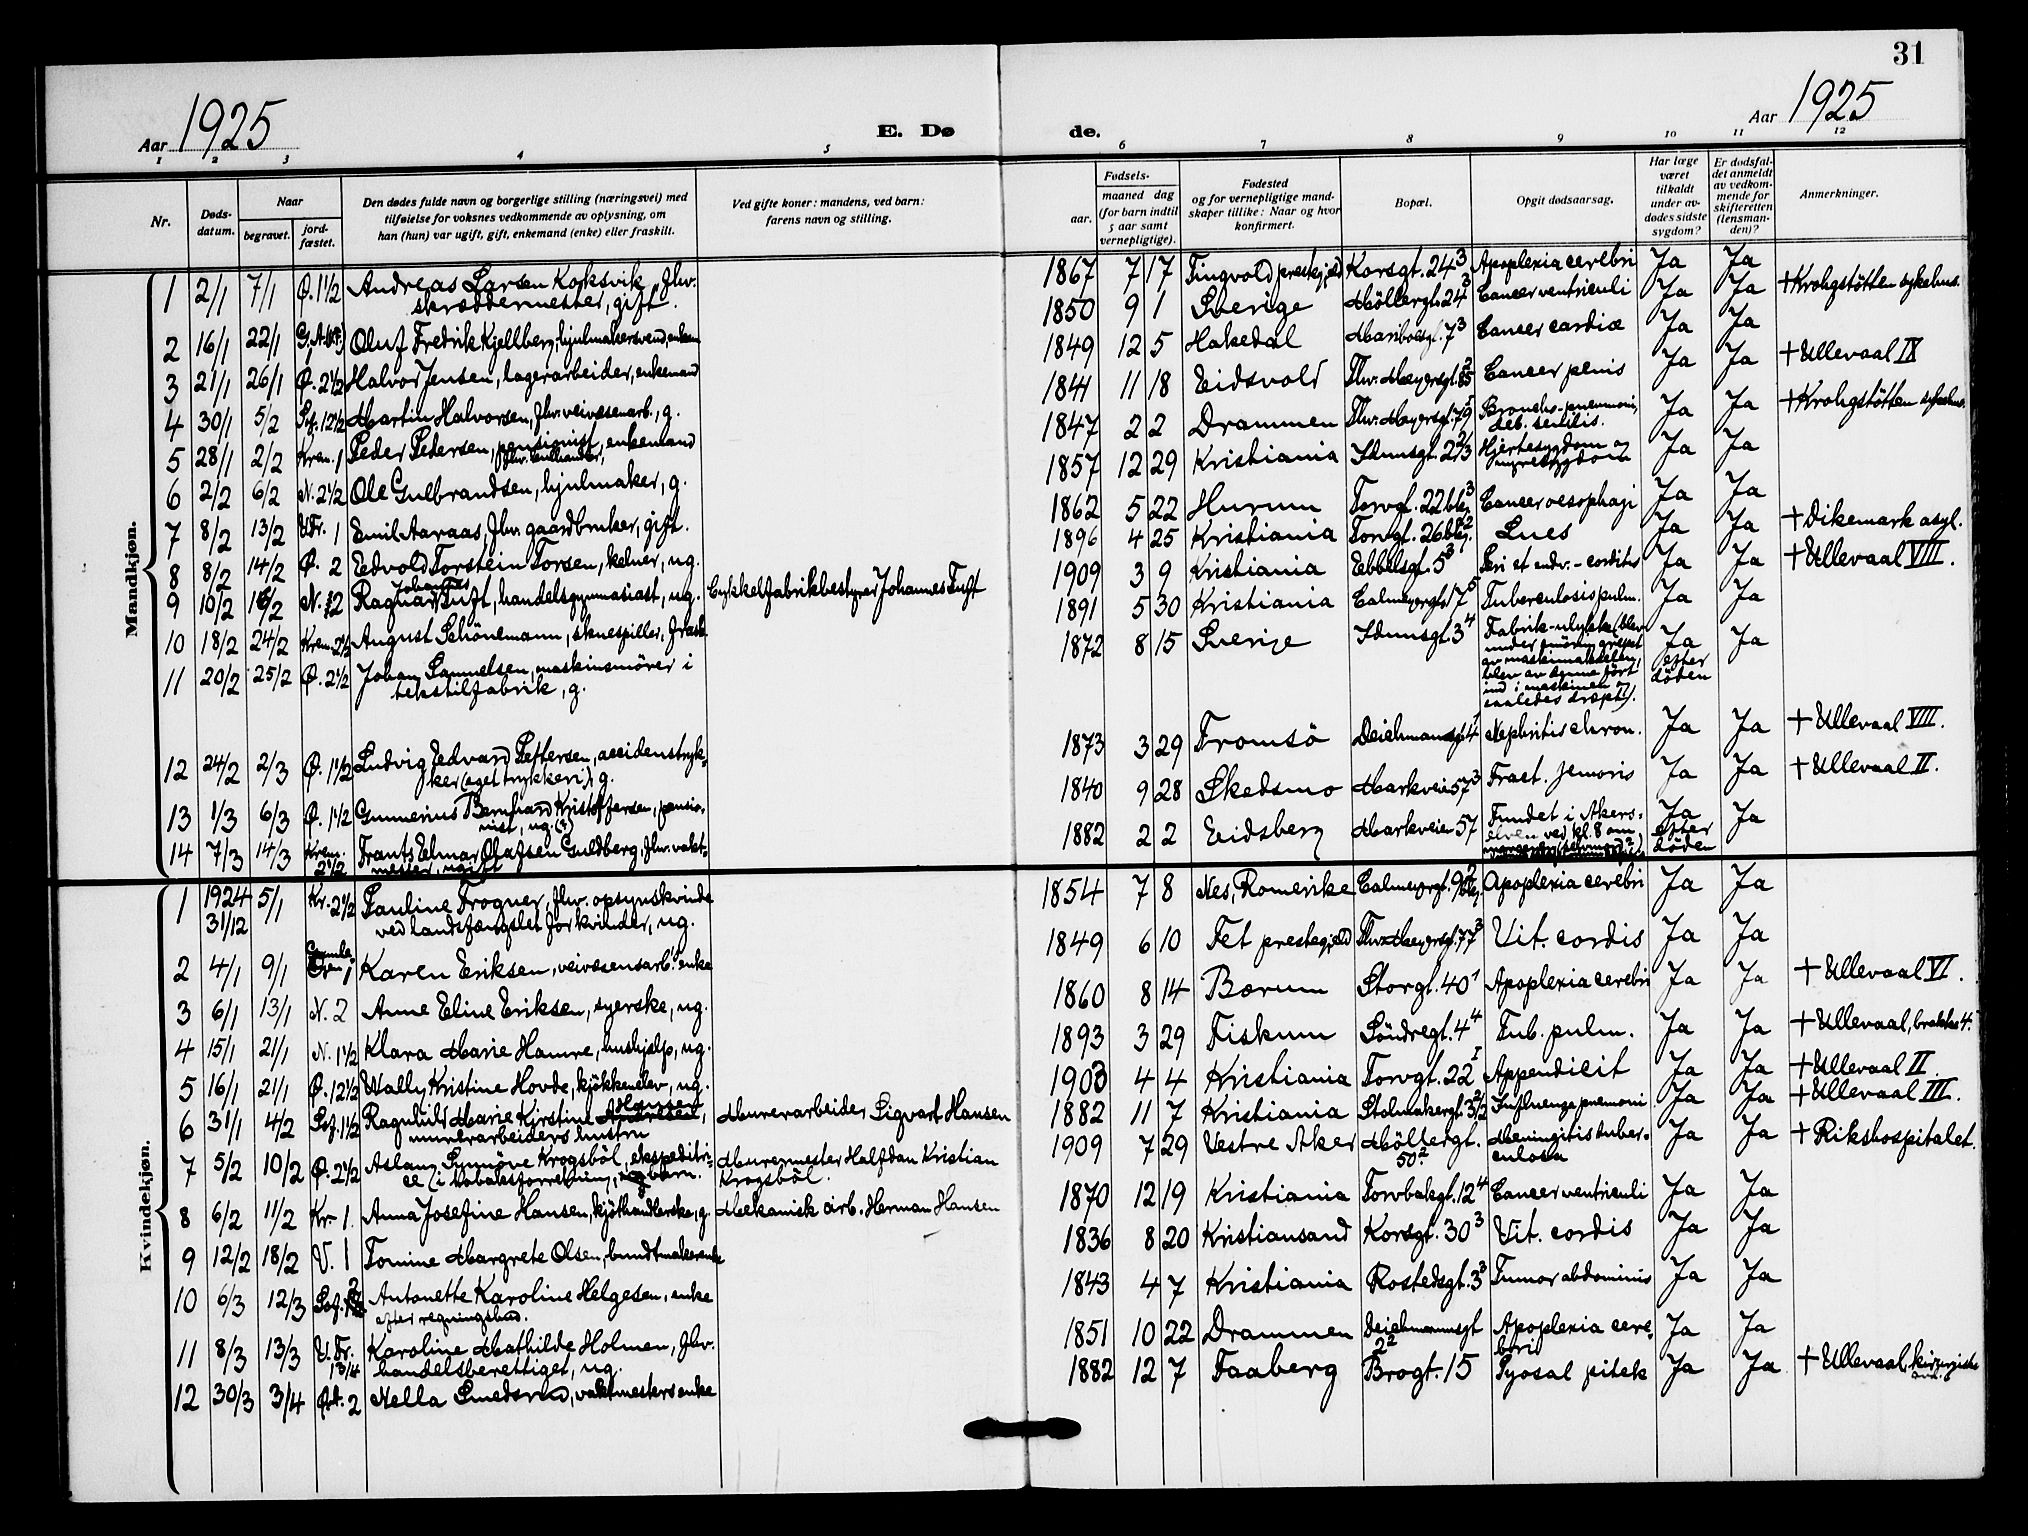 31
Aar 1925
E. Døde.
Aar 1925
1 2 3 4 5 6 7 8 9 10 11 12
Nr.
Døds-
datum.
Naar
begravet.
jord-
fæstet.
Den dødes fulde navn og borgerlige stilling (næringsvei) med
tilføielse for voksnes vedkommende av oplysning, om
han (hun) var ugift, gift, enkemand (enke) eller fraskilt.
Ved gifte koner: mandens, ved barn:
farens navn og stilling.
Fødsels-
aar.
maaned dag
(for barn indtil
5 aar samt
vernepligtige).
Fødested
og for vernepligtige mand-
skaper tillike: Naar og hvor
konfirmert.
Bopæl.
Opgit dødsaarsag.
Har læge
været
tilkaldt
under av-
dødes sidste
sygdom?
Er dødsfal-
det anmeldt
av vedkom-
mende for
skifteretten
(lensman-
den)?
Anmerkninger.
Mandkjøn.
1 2/1 7/1 Ø. 1 1/2 Andreas Larsen Korksvik, fhv. 1867 7 17 Tingvold prestegjeld Korsgt. 24³ Apoplexia cerebri Ja Ja
skræddermester, gift.
2 16/1 22/1 Oluf Fredrik Kjellberg, hjulmakersvend, enkem. 1850 9 1 Sverige Möllergt. 24³ Cancer ventriculi Ja Ja + Krohgstötten sykehus.
3 21/1 26/1 Ø. 2 1/2 Halvor Jensen, lagerarbeider, enkemand 1849 12 5 Hakedal Mariboesgt. 7³ Cancer cardiæ Ja Ja
4 30/1 5/2 Sof. 12 1/2 Martin Halvorsen, fhv. veivæsenarb., g. 1841 11 18 Eidsvold Thv. Meyersgt. Cancer penis Ja Ja + Ullevaal IX
5 28/1 2/2 Krem. 1 Peder Pedersen, pensionist, enkemand 1847 2 2 Drammen Thv. Meyersgt. Broncho-pneumoni, Ja Ja + Krohgstötten sykehus.
deb. senilis.
6 2/2 6/2 N. 2 1/2 Ole Gulbrandsen, hjulmaker, g. 1857 12 29 Kristiania Idunsgt. Hjertesygdom og Ja Ja
nyresygdom
7 8/2 13/2 V.Fr. 1 Emil Aaraas, fhv. gaardbruker, gift. 1862 5 22 Hurum Torvgt. 22 Cancer oesophagi Ja Ja
8 8/2 14/2 Ø. 2 Edvold Torstein Torsen, kelner, ug. 1896 4 25 Kristiania Torvgt. 26 Lues Ja Ja + Dikemark asyl.
9 10/2 16/2 N. 2 Ragnar Johannes Tuft, handelsgymnasiast, ug. Cykkelfabrikbestyrer Johannes Tuft 1909 3 9 Kristiania Ebbelsgt. 5³ Peri et endo-carditis Ja Ja + Ullevaal VIII.
10 18/2 24/2 Krem. 2 1/2 August Schönemann, skuespiller, frask. 1891 5 30 Kristiania Calmeyersgt. 7⁵ Tuberculosis pulm. Ja Ja
11 20/2 25/2 Ø. 2 1/2 Johan Samuelsen, maskinsmörer i 1872 8 15 Sverige Idunsgt. 3⁴ Fabrik-ulykke (blev Ja Ja
tekstilfabrik, g. under smöring grepet efter
av maskinakselen, döden
blev av denne fört
ind i maskinen og
saaledes dræpt).
12 24/2 2/3 Ø. 1 1/2 Ludvig Edvard Pettersen, accidenstryk- 1873 3 29 Tromsö Deichmansgt. Nephritis chron. Ja Ja + Ullevaal VIII.
ker (eget trykkeri), g.
13 1/3 6/3 Ø. 1 1/2 Gunnerius Bernhard Kristoffersen, pensio- 1840 9 28 Skedsmo Markveien 57³ Fract. femoris Ja Ja + Ullevaal II.
nist, ug. (?)
14 7/3 14/3 Krem. 2 1/2 Frants Elmar Olafsen Guldberg, fhv. vakt- 1882 2 2 Eidsberg Markveien 57 Fundet i Akers- Ja Ja
mester, ugift elven ved kl. 8 om efter
döden
Kvindekjøn.
1 1924 5/1 Kr. 2 1/2 Pauline Trogner, fhv. opsynskvinde 1854 7 8 Nes, Romerike Calmeyergt. Apoplexia cerebri Ja Ja
31/12 ved landsfængslet for kvinder, ug.
2 4/1 9/1 Gamle Karen Eriksen, veivæsensarb. enke 1849 6 10 Fet prestegjeld Thv. Meyersgt. 77³ Vit. cordis Ja Ja
3 6/1 13/1 N. 2 Anne Eline Eriksen, syerske, ug. 1860 8 14 Bærum Storgt. 40¹ Apoplexia cerebri Ja Ja + Ullevaal VI.
4 15/1 21/1 N. 1 1/2 Klara Marie Hamre, hushjelp, ug. 1893 3 29 Fiskum Söndregt. 4⁴ Tub. pulm. Ja Ja + Ullevaal, brakke 4.
5 16/1 21/1 Ø. 12 1/2 Wally Kristine Hovde, kjökkenelev, ug. 1903 4 4 Kristiania Torvgt. 22 Appendicit Ja Ja + Ullevaal II.
6 31/1 4/2 Sof. 1 1/2 Ragnhild Marie Kirstine Hansen, Murerarbeider Sigvart Hansen 1882 11 7 Kristiania Stolmakergt. Influenza pneumoni Ja Ja + Ullevaal III.
murerarbeiders hustru
7 5/2 10/2 Ø. 2 1/2 Aslaug Synnöve Krogsböl, ekspeditri- Murermester Halfdan Kristian 1909 7 29 Vestre Aker Möllergt. Meningitis tuber- Ja Ja + Rikshospitalet.
ce (i tobaksforretning), barn. Krogsböl. 50² culosa
8 6/2 11/2 Kr. 1. Anna Josefine Hansen, kjöthandlerske, g. Mekanisk arb. Herman Hansen 1870 12 19 Kristiania Torvbakgt. 12⁴ Cancer ventriculi Ja Ja
9 12/2 18/2 V. 1 Tomine Margrete Olsen, bundtmakerenke 1836 8 20 Kristiansand Korsgt. 30³ Vit. cordis Ja Ja
10 6/3 12/3 Sof. Antonette Karoline Helgesen, enke 1843 4 7 Kristiania Rostedsgt. 3³ Tumor abdominis Ja Ja
efter regningsbud.
11 8/3 13/3 V. Fr. Karoline Mathilde Holmen, fhv. 1851 10 22 Drammen Deichmannsgt Apoplexia cere- Ja Ja
1 3/4 handelsberettiget, ug. 2² bri
12 30/3 3/4 2 Nella Smedsrud, vaktmesters enke 1882 12 7 Faaberg Brogt. 15 Pyosal pitek Ja Ja + Ullevaal, kirurgiske
avd.